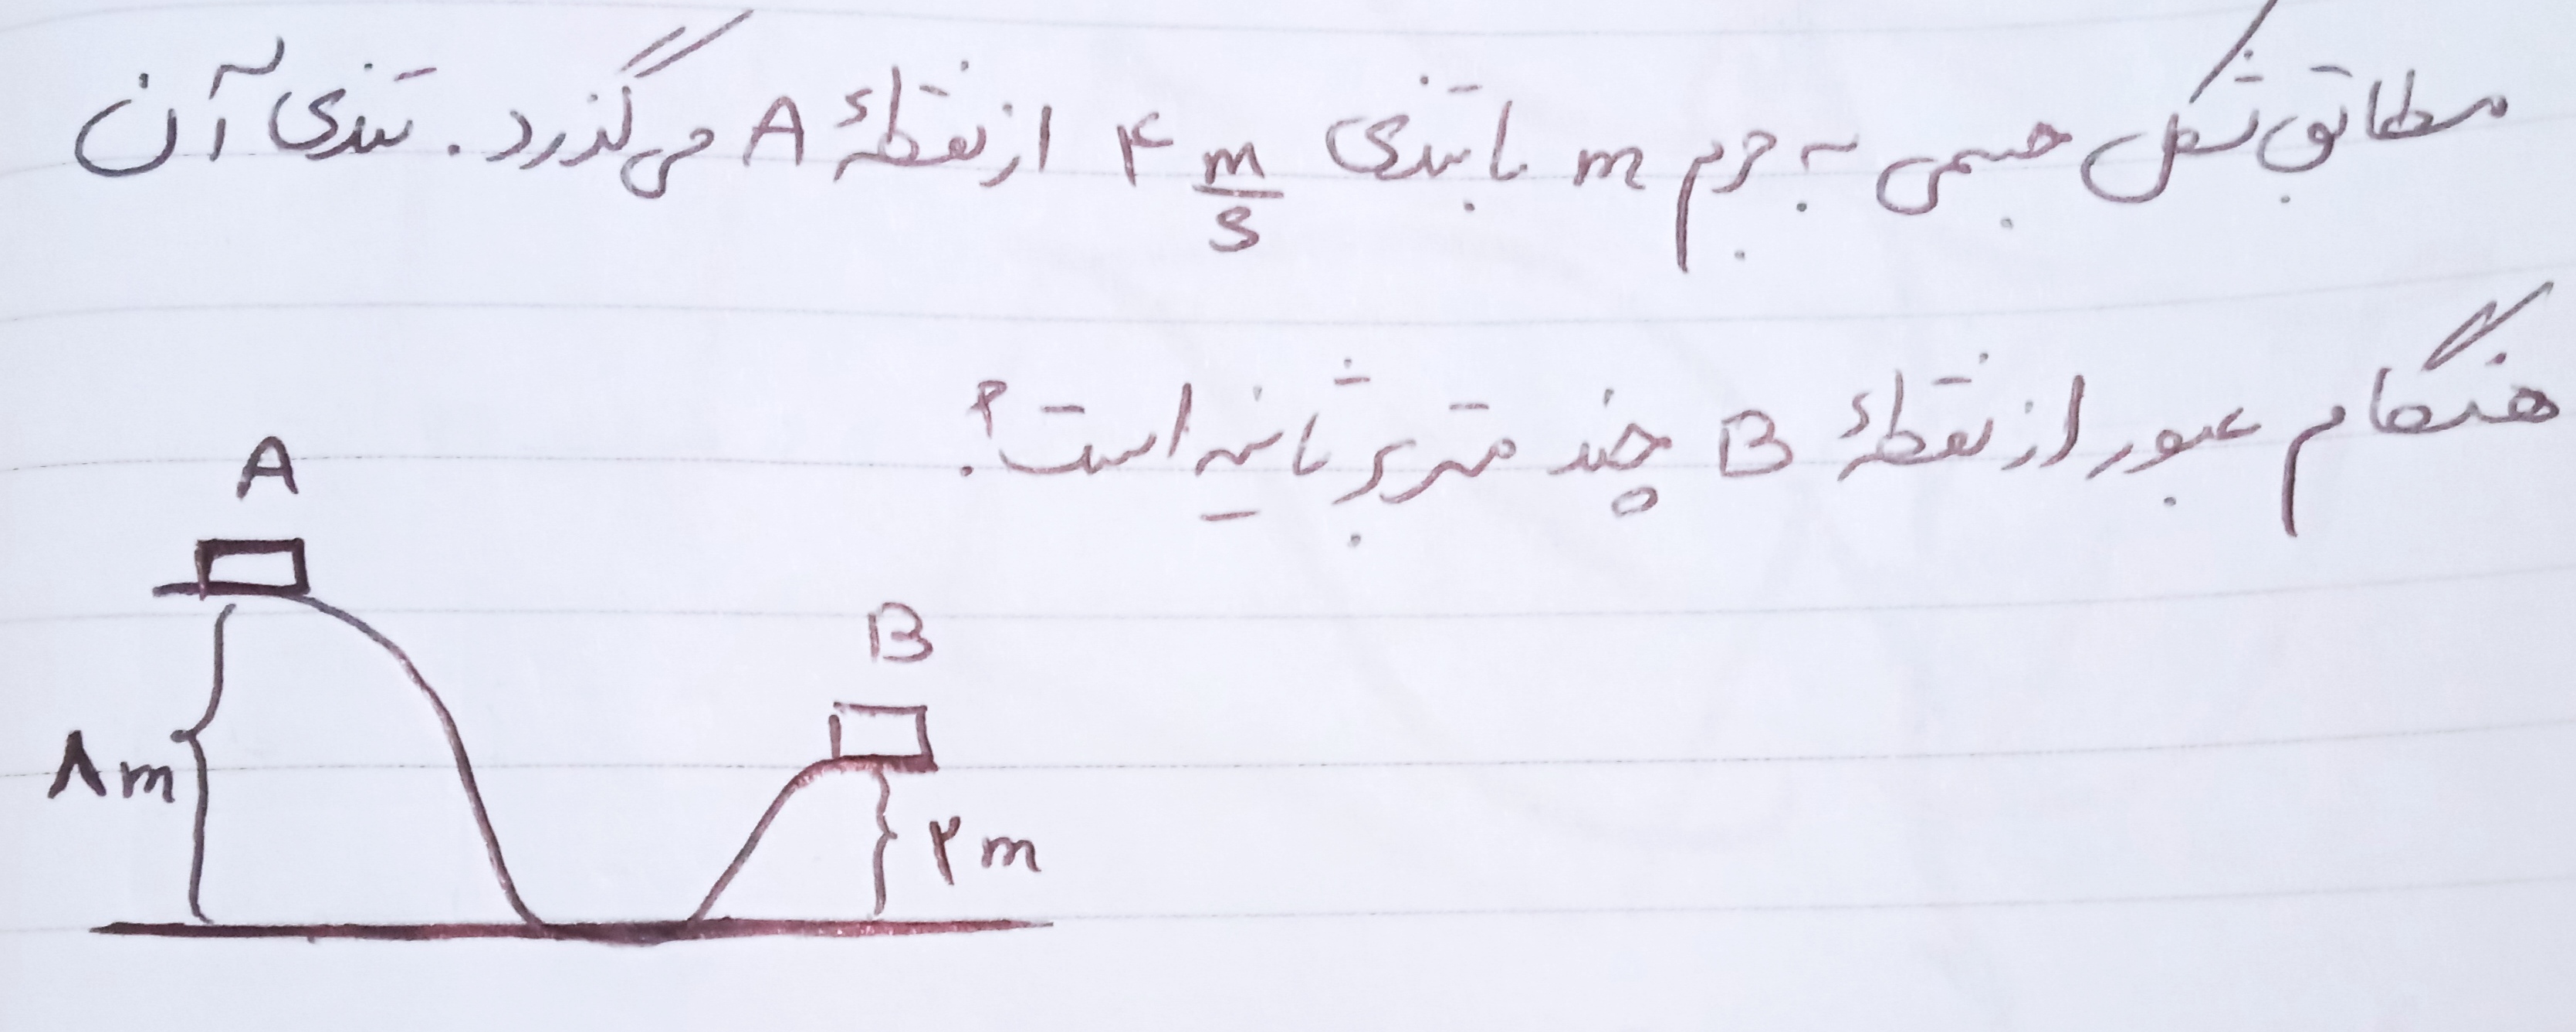 مطابق شکل جسمی به جرم m با تندی ۴ m/s از نقطهٔ A می‌گذرد. تندی آن
هنگام عبور از نقطهٔ B چند متر بر ثانیه است؟
A
B
۸m
۲m